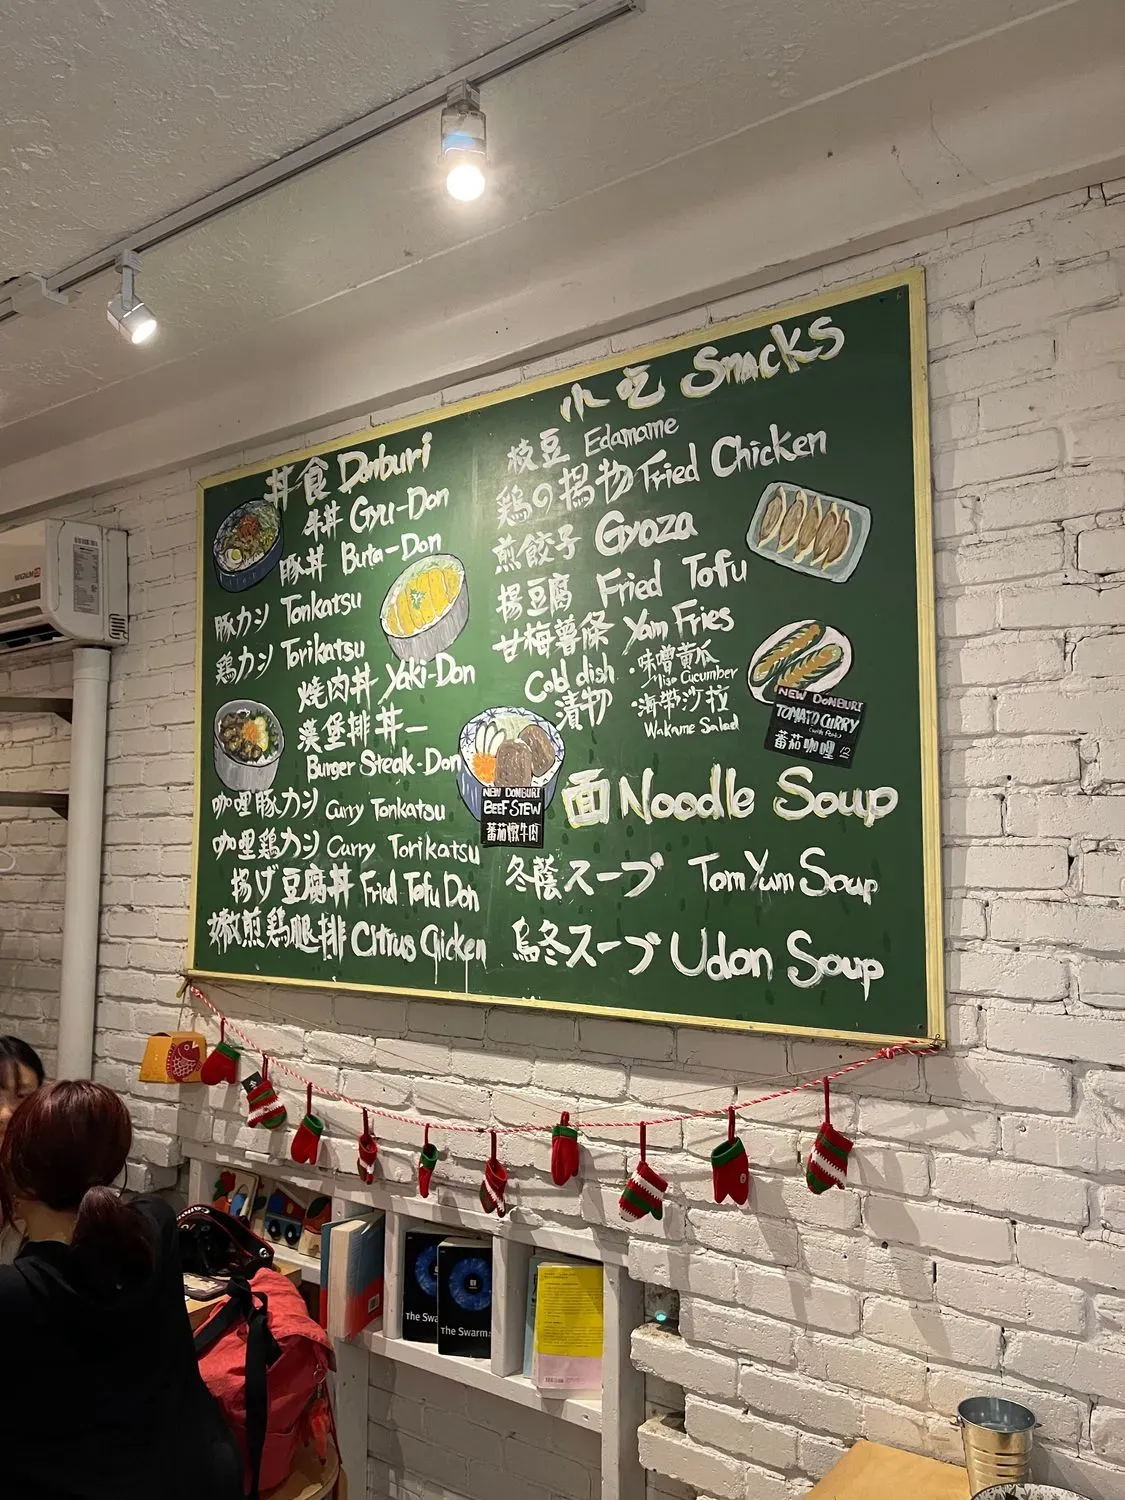 丼食 Donburi
牛丼 Gyu-Don
豚丼 Buta-Don
豚カシ Tonkatsu
鶏カシ Torikatsu
燒肉丼 Yaki-Don
漢堡排丼
Burger Steak-Don
咖哩豚カシ Curry Tonkatsu
咖哩鶏カシ Curry Torikatsu
揚げ豆腐丼 Fried Tofu Don
煎鶏腿排 Citrus Chicken
NEW DONBURI
BEEF STEW
蕃茄燉牛肉
小吃 Snacks
枝豆 Edamame
鶏の揚物 Fried Chicken
煎餃子 Gyoza
揚豆腐 Fried Tofu
甘梅薯條 Yam Fries
Cold dish
漬物
·味噌黄瓜
Miso Cucumber
·海帶沙拉
Wakame Salad
NEW DONBURI
TOMATO CURRY
蕃茄咖哩 12
面 Noodle Soup
冬蔭スープ Tom Yum Soup
烏冬スープ Udon Soup
The Swarm
The Swarm